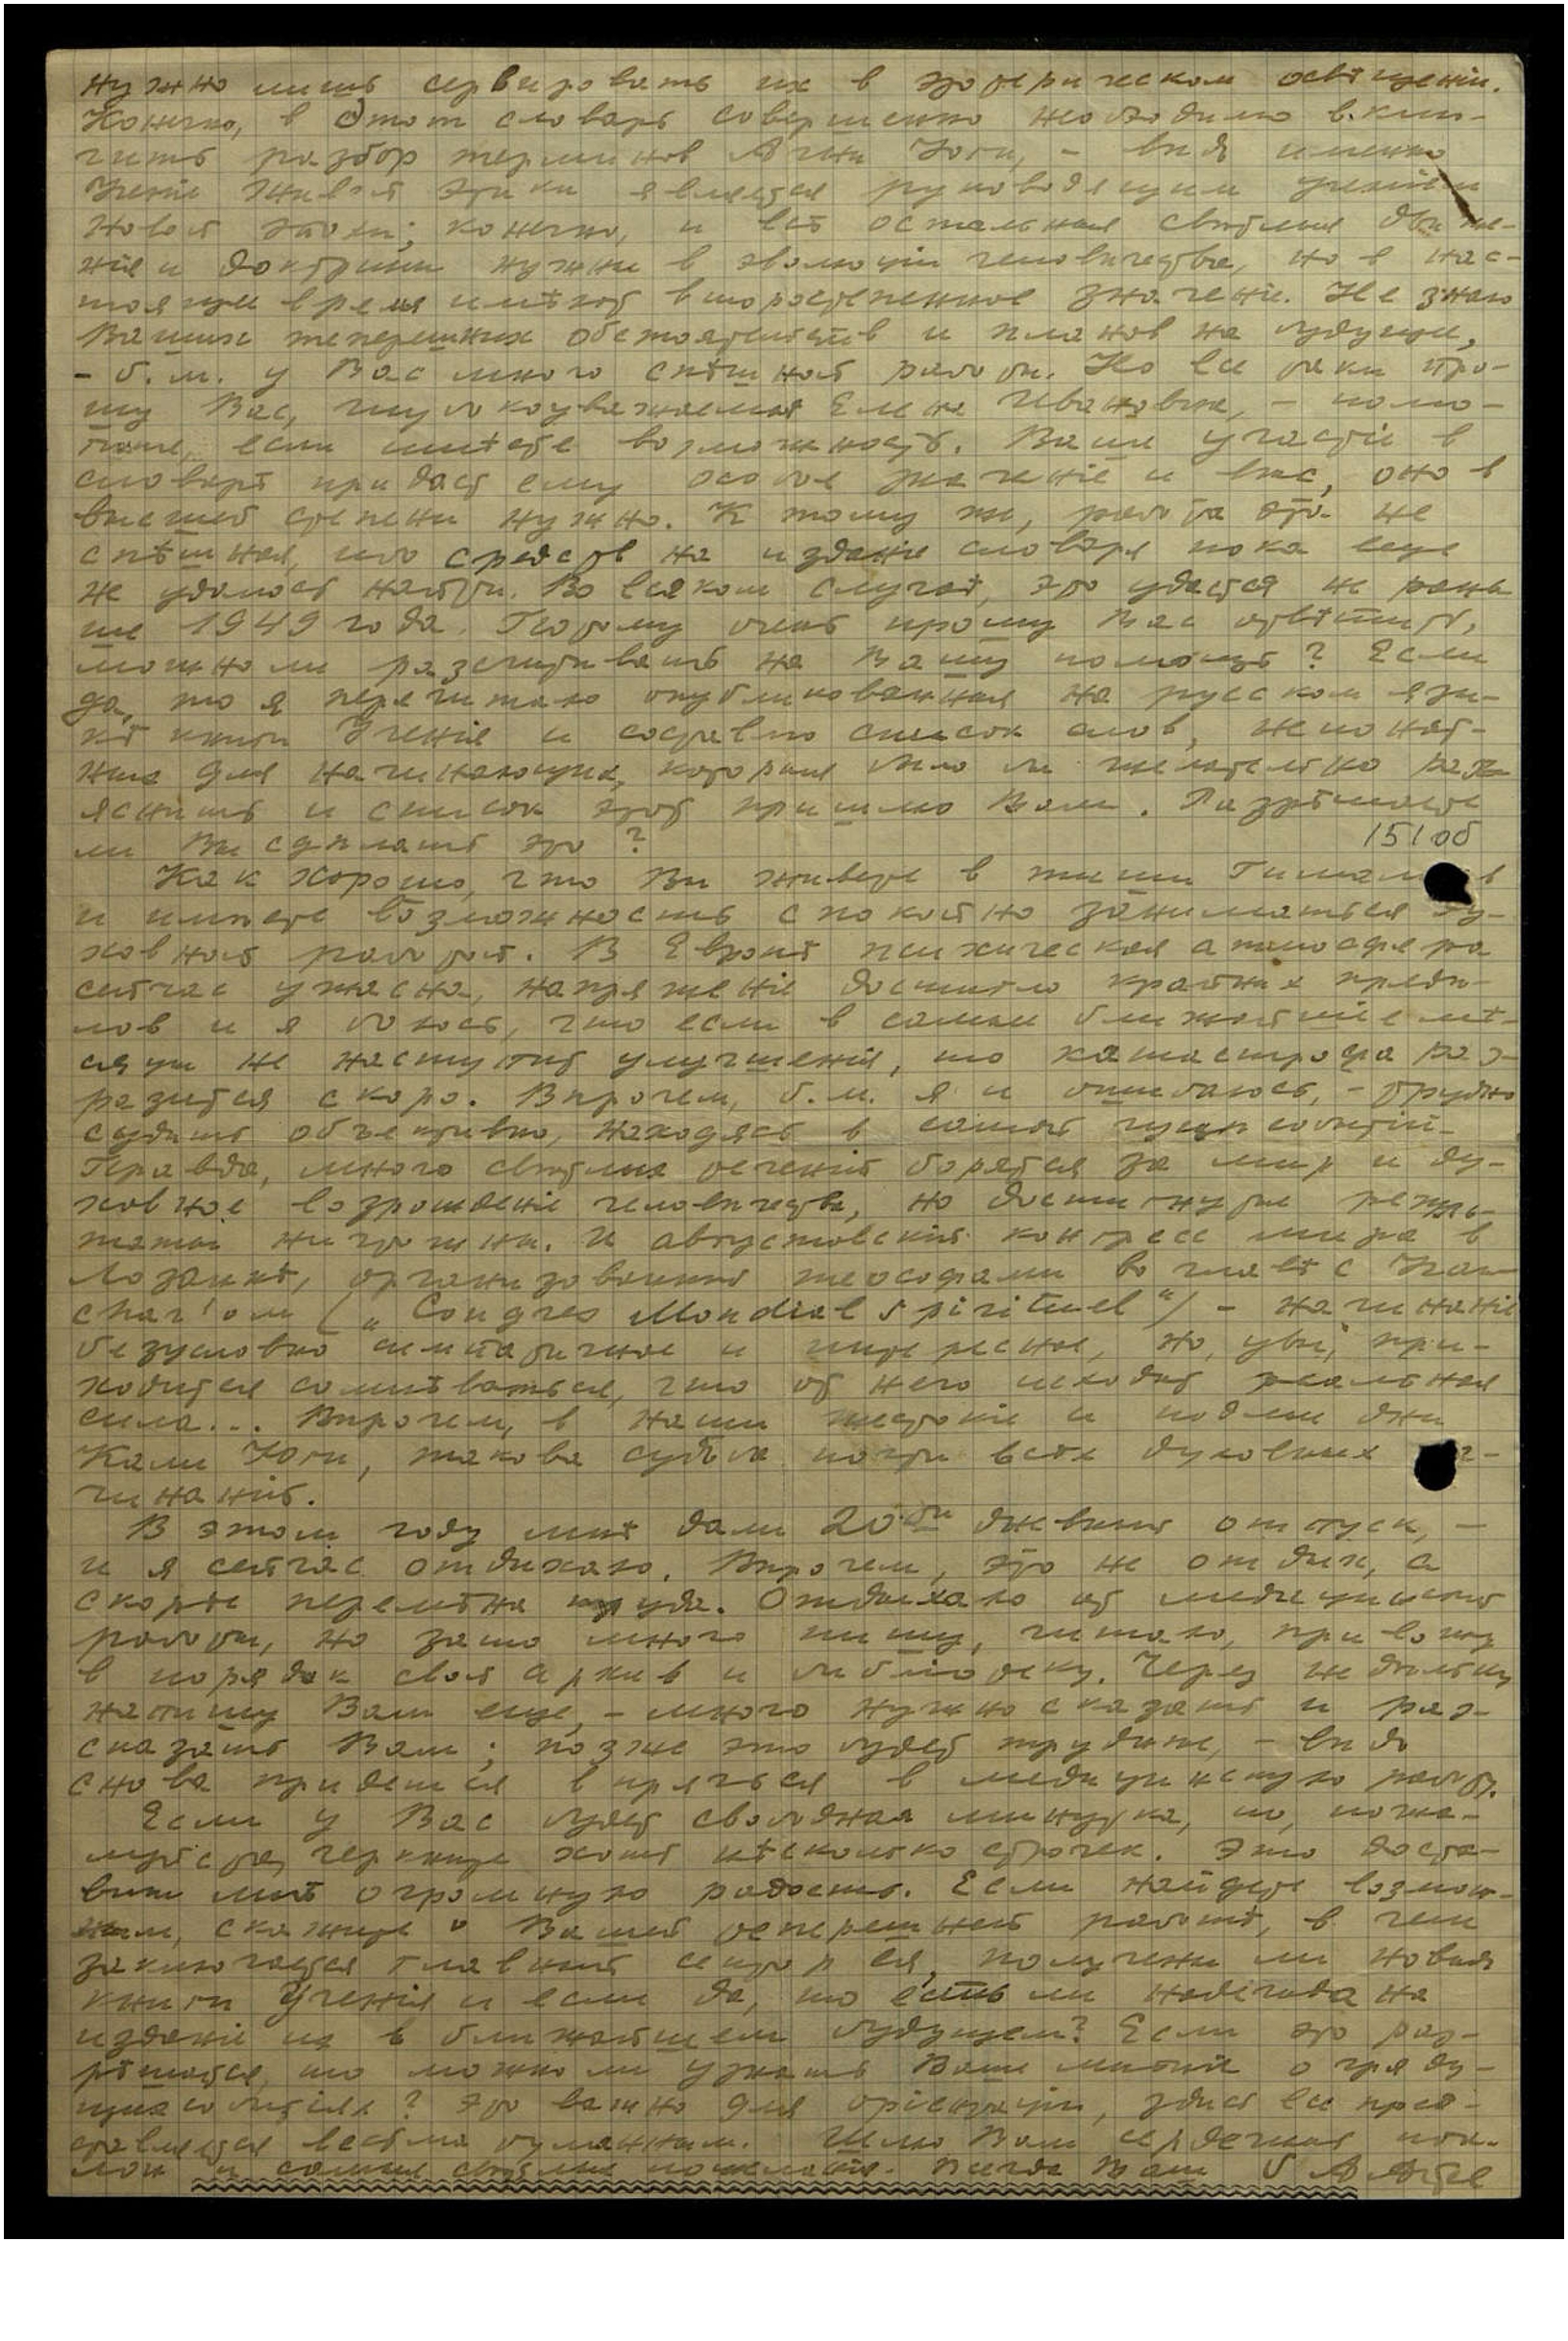 нужно лишь сервировать их в эзотерическом освѣщеніи.
Конечно, в этот словарь совершенно необходимо вклю-
чить разбор терминов Агни Йоги, – вѣдь именно
Ученіе Живой Этики является руководящим ученіем
Новой Эпохи; конечно, и всѣ остальныя свѣтлыя движе-
нія и доктрины нужны в эволюціи человѣчества, но в нас-
тоящее время имѣют второстепенное значеніе. Не знаю
Ваших теперешних обстоятельств и планов на будущее,
– б.м. у Вас много спѣшной работы. Но все таки про-
шу Вас, глубокоуважаемая Елена Ивановна, – помо-
гите, если имѣете возможность. Ваше участіе в
словарѣ придаст ему особое значеніе и вѣс, оно в
высшей степени нужно. К тому же, работа эта не
спѣшная, ибо средств на изданіе словаря пока еще
не удалось найти. Во всяком случаѣ, это удастся не рань-
ше 1949 года. Поэтому очень прошу Вас отвѣтить,
можно ли разсчитывать на Вашу помощь? Если
да, то я перечитаю опубликованныя на русском язы-
кѣ книги Ученія и составлю список слов, непонят-
ных для начинающих, которыя было бы желательно раз-
яснить и список этот пришлю Вам. Разрѣшаете
ли Вы сдѣлать это?
151об
Как хорошо, что Вы живете в тиши Гималаев
и имѣете возможность спокойно заниматься ду-
ховной работой. В Европѣ психическая атмосфера
сейчас ужасна, напряженіе достигло крайних предѣ-
лов и я боюсь, что если в самые ближайшіе мѣ-
сяцы не наступит улучшенія, то катастрофа раз-
разится скоро. Впрочем, б.м. я и ошибаюсь, – трудно
судить объективно, находясь в самой гущѣ событій.
Правда, много свѣтлых теченій борятся за мир и ду-
ховное возрожденіе человѣчества, но достигнутые резуль-
таты ничтожны. И августовскій конгресс мира в
Лозаннѣ, организованный теософами во главѣ с
char'ом („Congres Mondial Spirituel“) – начинаніе
безусловно симпатичное и интересное, но, увы, при-
ходится сомнѣваться, что от него исходит реальная
сила... Впрочем, в наши жестокіе и подлые дни
Кали Юги, такова судьба почти всѣх духовных на-
чинаній.
В этом году мнѣ дали 20-ти дневный отпуск, –
и я сейчас отдыхаю. Впрочем, это не отдых, а
скорѣе перемѣна труда. Отдыхаю от медицинской
работы, но зато много пишу, читаю, привожу
в порядок свой архив и библіотеку. Через недѣльку
напишу Вам еще, – много нужно сказать и раз-
сказать Вам; позже это будет труднѣе, – вѣдь
снова придется впрячься в медицинскую работу.
Если у Вас будет свободная минутка, то, пожа-
луйста, черкните хоть нѣсколько строчек. Это доста-
вит мнѣ огромную радость. Если найдете возмож-
ным, скажите о Вашей теперешней работѣ, в чем
заключается главный сектор ея, получены ли новыя
книги Ученія и если да, то есть ли надежда на
изданіе их в ближайшем будущем? Если это раз-
рѣшается, то можно ли узнать Ваше мнѣніе о гряду-
щих событіях? Это важно для оріентаціи, здѣсь все пред-
ставляется весьма туманным. Шлю Вам сердечный пок-
лон и самыя свѣтлыя пожеланія. Всегда Ваш